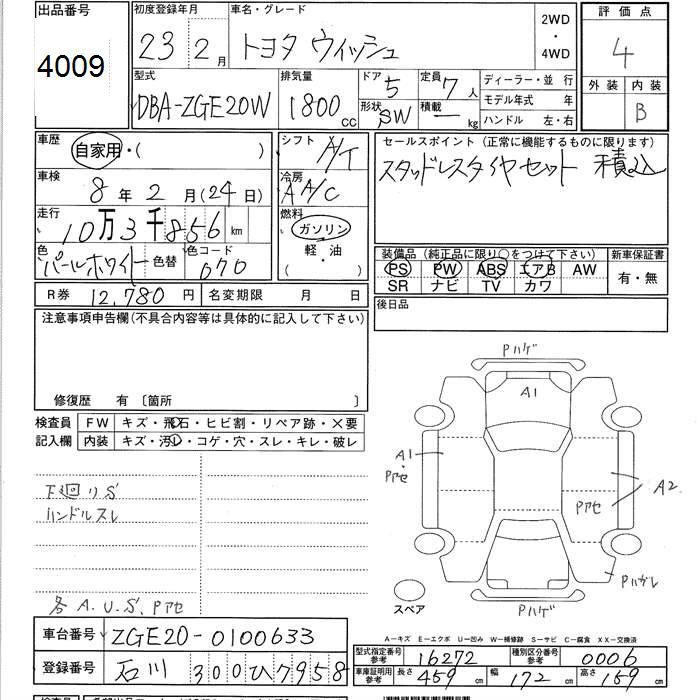 出品番号
4009
初度登録年月
23 2月
車名・グレード
トヨタ ウィッシュ
2WD
・
4WD
評価点
4
型式
DBA-ZGE20W
排気量
1800 CC
ドア 5
形状 SW
定員 7人
積載 ー kg
ディーラー・並 行
モデル年式 年
ハンドル 左・右
外装 内装
B
車歴
自家用・( )
シフト
A/T
車検
8年 2月 (24日)
冷房
AA/C
走行
10万3千856km
燃料
ガソリン
軽・油
( )
色
パールホワイト
色替
色コード
070
R券 12,780円
名変期限 月 日
セールスポイント (正常に機能するものに限ります)
スタッドレスタイヤセット 積込
装備品 (純正品に限り○をつけて下さい)
新車保証書
PS PW ABS エアB AW
有・無
SR ナビ TV カワ
後日品
注意事項申告欄(不具合内容等は具体的に記入して下さい)
修復歴 有 〔箇所 〕
検査員
記入欄
FW キズ・飛石・ヒビ割・リペア跡・×要
内装 キズ・汚し・コゲ・穴・スレ・キレ・破レ
下廻りS
ハンドルスレ
各A.U.S、Pアセ
Pハゲ
A1
A1
・
Pアセ
A2
Pアセ
Pハガレ
Pハゲ
スペア
A－キズ E－エクボ U－凹み W－補修跡 S－サビ C－腐食 XX－交換済
車台番号 ZGE20-0100633
登録番号 石川 300 ひ 7958
型式指定番号
参考
16272
種別区分番号
参考
0006
車庫証明用
参考
長さ 459cm
幅 172cm
高さ 159cm